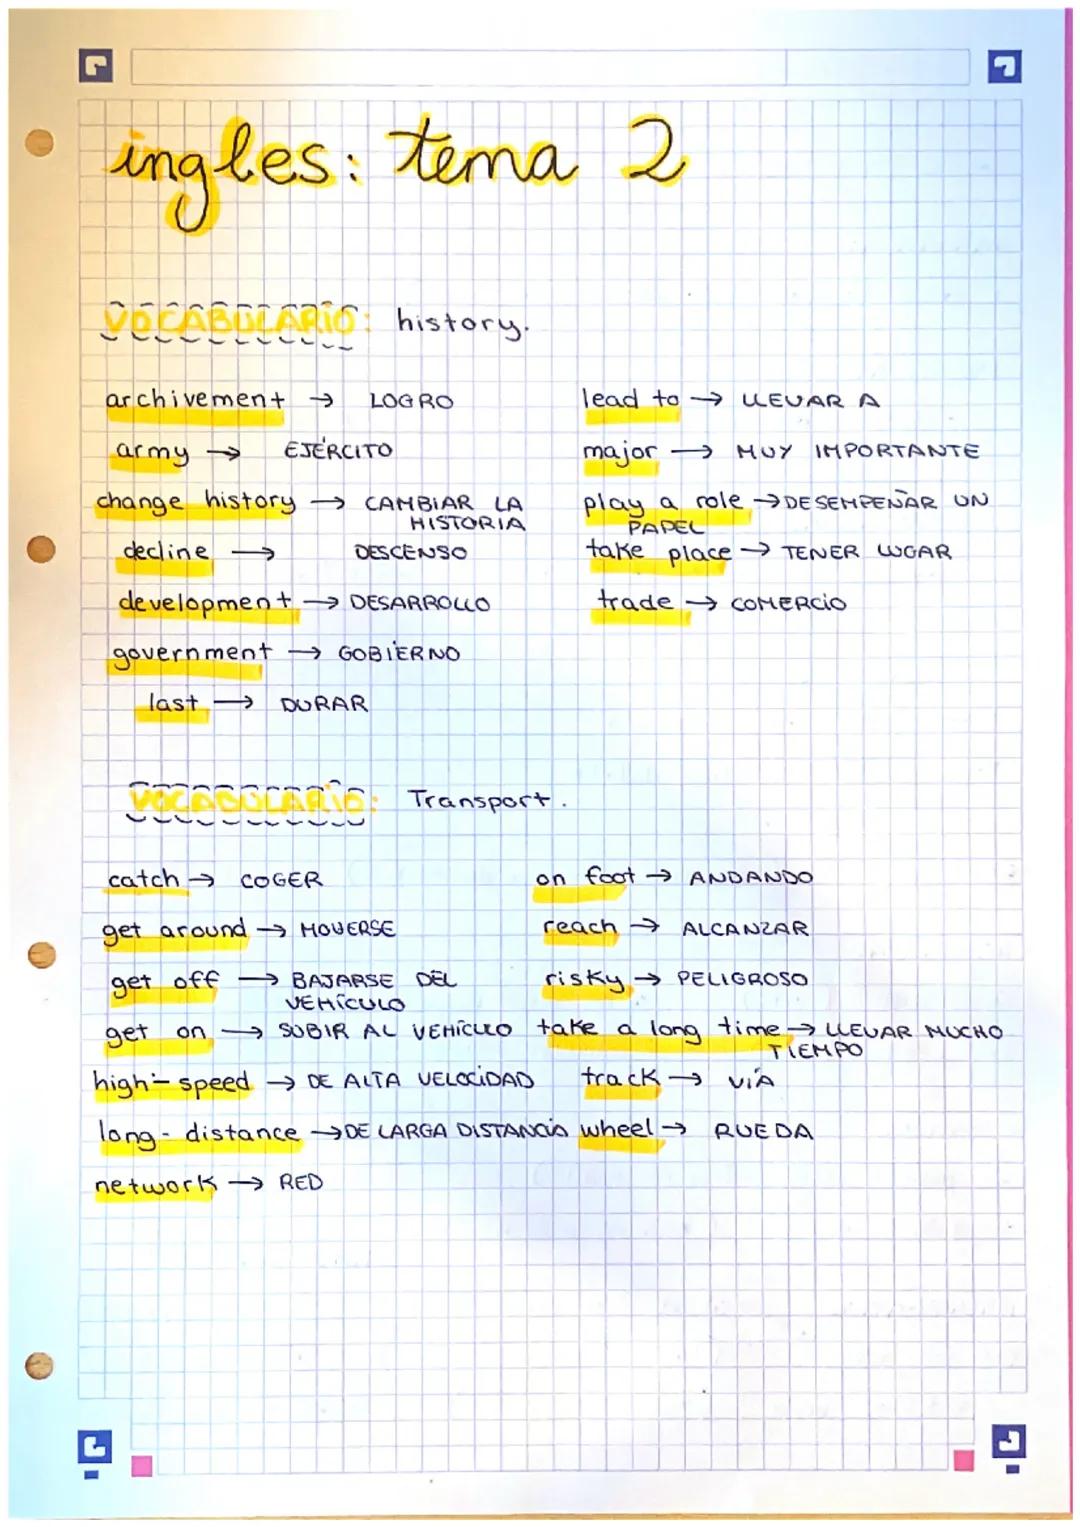 ingles: tema 2
VOCABULARIO: history.
archivement → LOGRO
army → EJÉRCITO
change history → CAMBIAR LA
HISTORIA
decline → DESCENSO
development → DESARROLLO
government → GOBIERNO
last → DURAR
lead to → LLEVAR A
major → MUY IMPORTANTE
play a role → DESEMPEÑAR UN
PAPEL
take place → TENER LUGAR
trade → COMERCIO
VOCABULARIO: Transport.
catch → COGER
get around → MOVERSE
get off → BAJARSE DEL
VEHÍCULO
get on → SUBIR AL VEHÍCULO
high-speed → DE ALTA VELOCIDAD
long-distance → DE LARGA DISTANCIA
network → RED
on foot → ANDANDO
reach → ALCANZAR
risky → PELIGROSO
take a long time → LLEVAR MUCHO
TIEMPO
track → VÍA
wheel → RUEDA